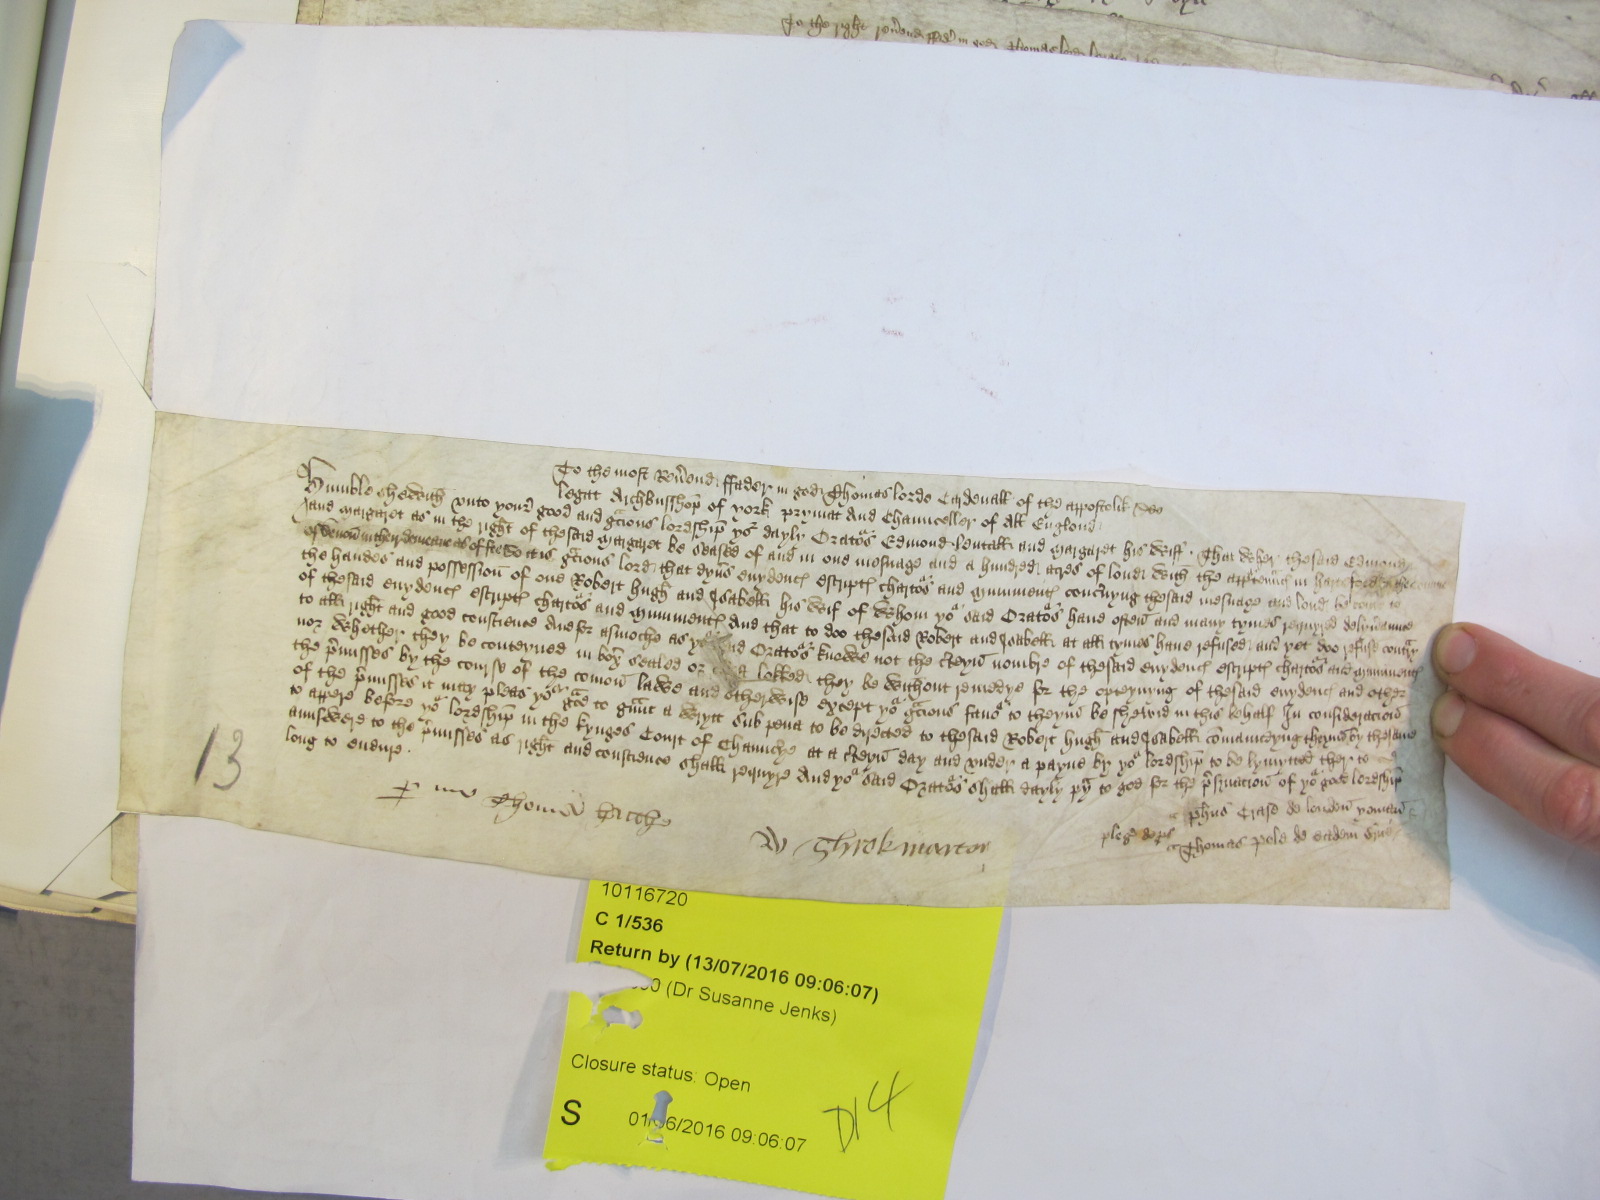 To the right rev'end ffad' in god Thomas lord
To the most Rev'end ffader in god Thomas lorde Cardenall of the appostolik See
legat Archbusshop of york prymat And Chaunceller of All Englond
Humble shewith unto your good and g'cious lordship yor dayly Orators Edmond and Margaret his Wiff That Wher thesaid Edmond
and Margaret as in the right of thesaid Margaret be seased of and in one mesuage and a hundred acres of lond With the in
in their demeane as of fee so it is g'cious lord that dyu's euydenc escriptes chartors and mynumentes conc'nyng thesaid mesuage and lond be come to
the handes and possession of one Robert Hugh and Isabell his Wif of Whom yor said Orators haue often and many tymes requyred delyu'aunce
of thesaid euydenc escriptes chartors and mynumentes And that to doo thesaid Robert and Isabell at all tymes haue refused and yet doo refuse contrary
to all right and good conscience And for asmoche as Orators knowe not the c'teyn nombre of thesaid euydenc escriptes chartors and mynumentes
nor Whether they be conteyned in box sealed or locked they be Without remedye for the opteynyng of thesaid euydenc and other
the p'misses by the course of the comon lawe and otherwise except yor g'cious fauor to theym be shewid in this behalf In consideracion
of the p'misses it may pleas yor g'ce to g'unt a Wrytt Sub pena to be directed to thesaid Robert Hugh and Isabell comaundyng theym by thesame
to appere before yor lordship in the kynges Court of Chauncery at a c'teyn day and under a payne by yor lordship to be lymytted ther to
aunswere to the p'misses as right and conscience shall requyre And yor said Orators shall dayly p'y to god for the p's'uacion of yor good lordship
long to endure.
13
Thomas
W Throkmarton
pleg de ps
Crase de london yoman
Thomas Pele de eadem
10116720
C 1/536
Return by (13/07/2016 09:06:07)
(Dr Susanne Jenks)
Closure status: Open
S 01/06/2016 09:06:07
D14